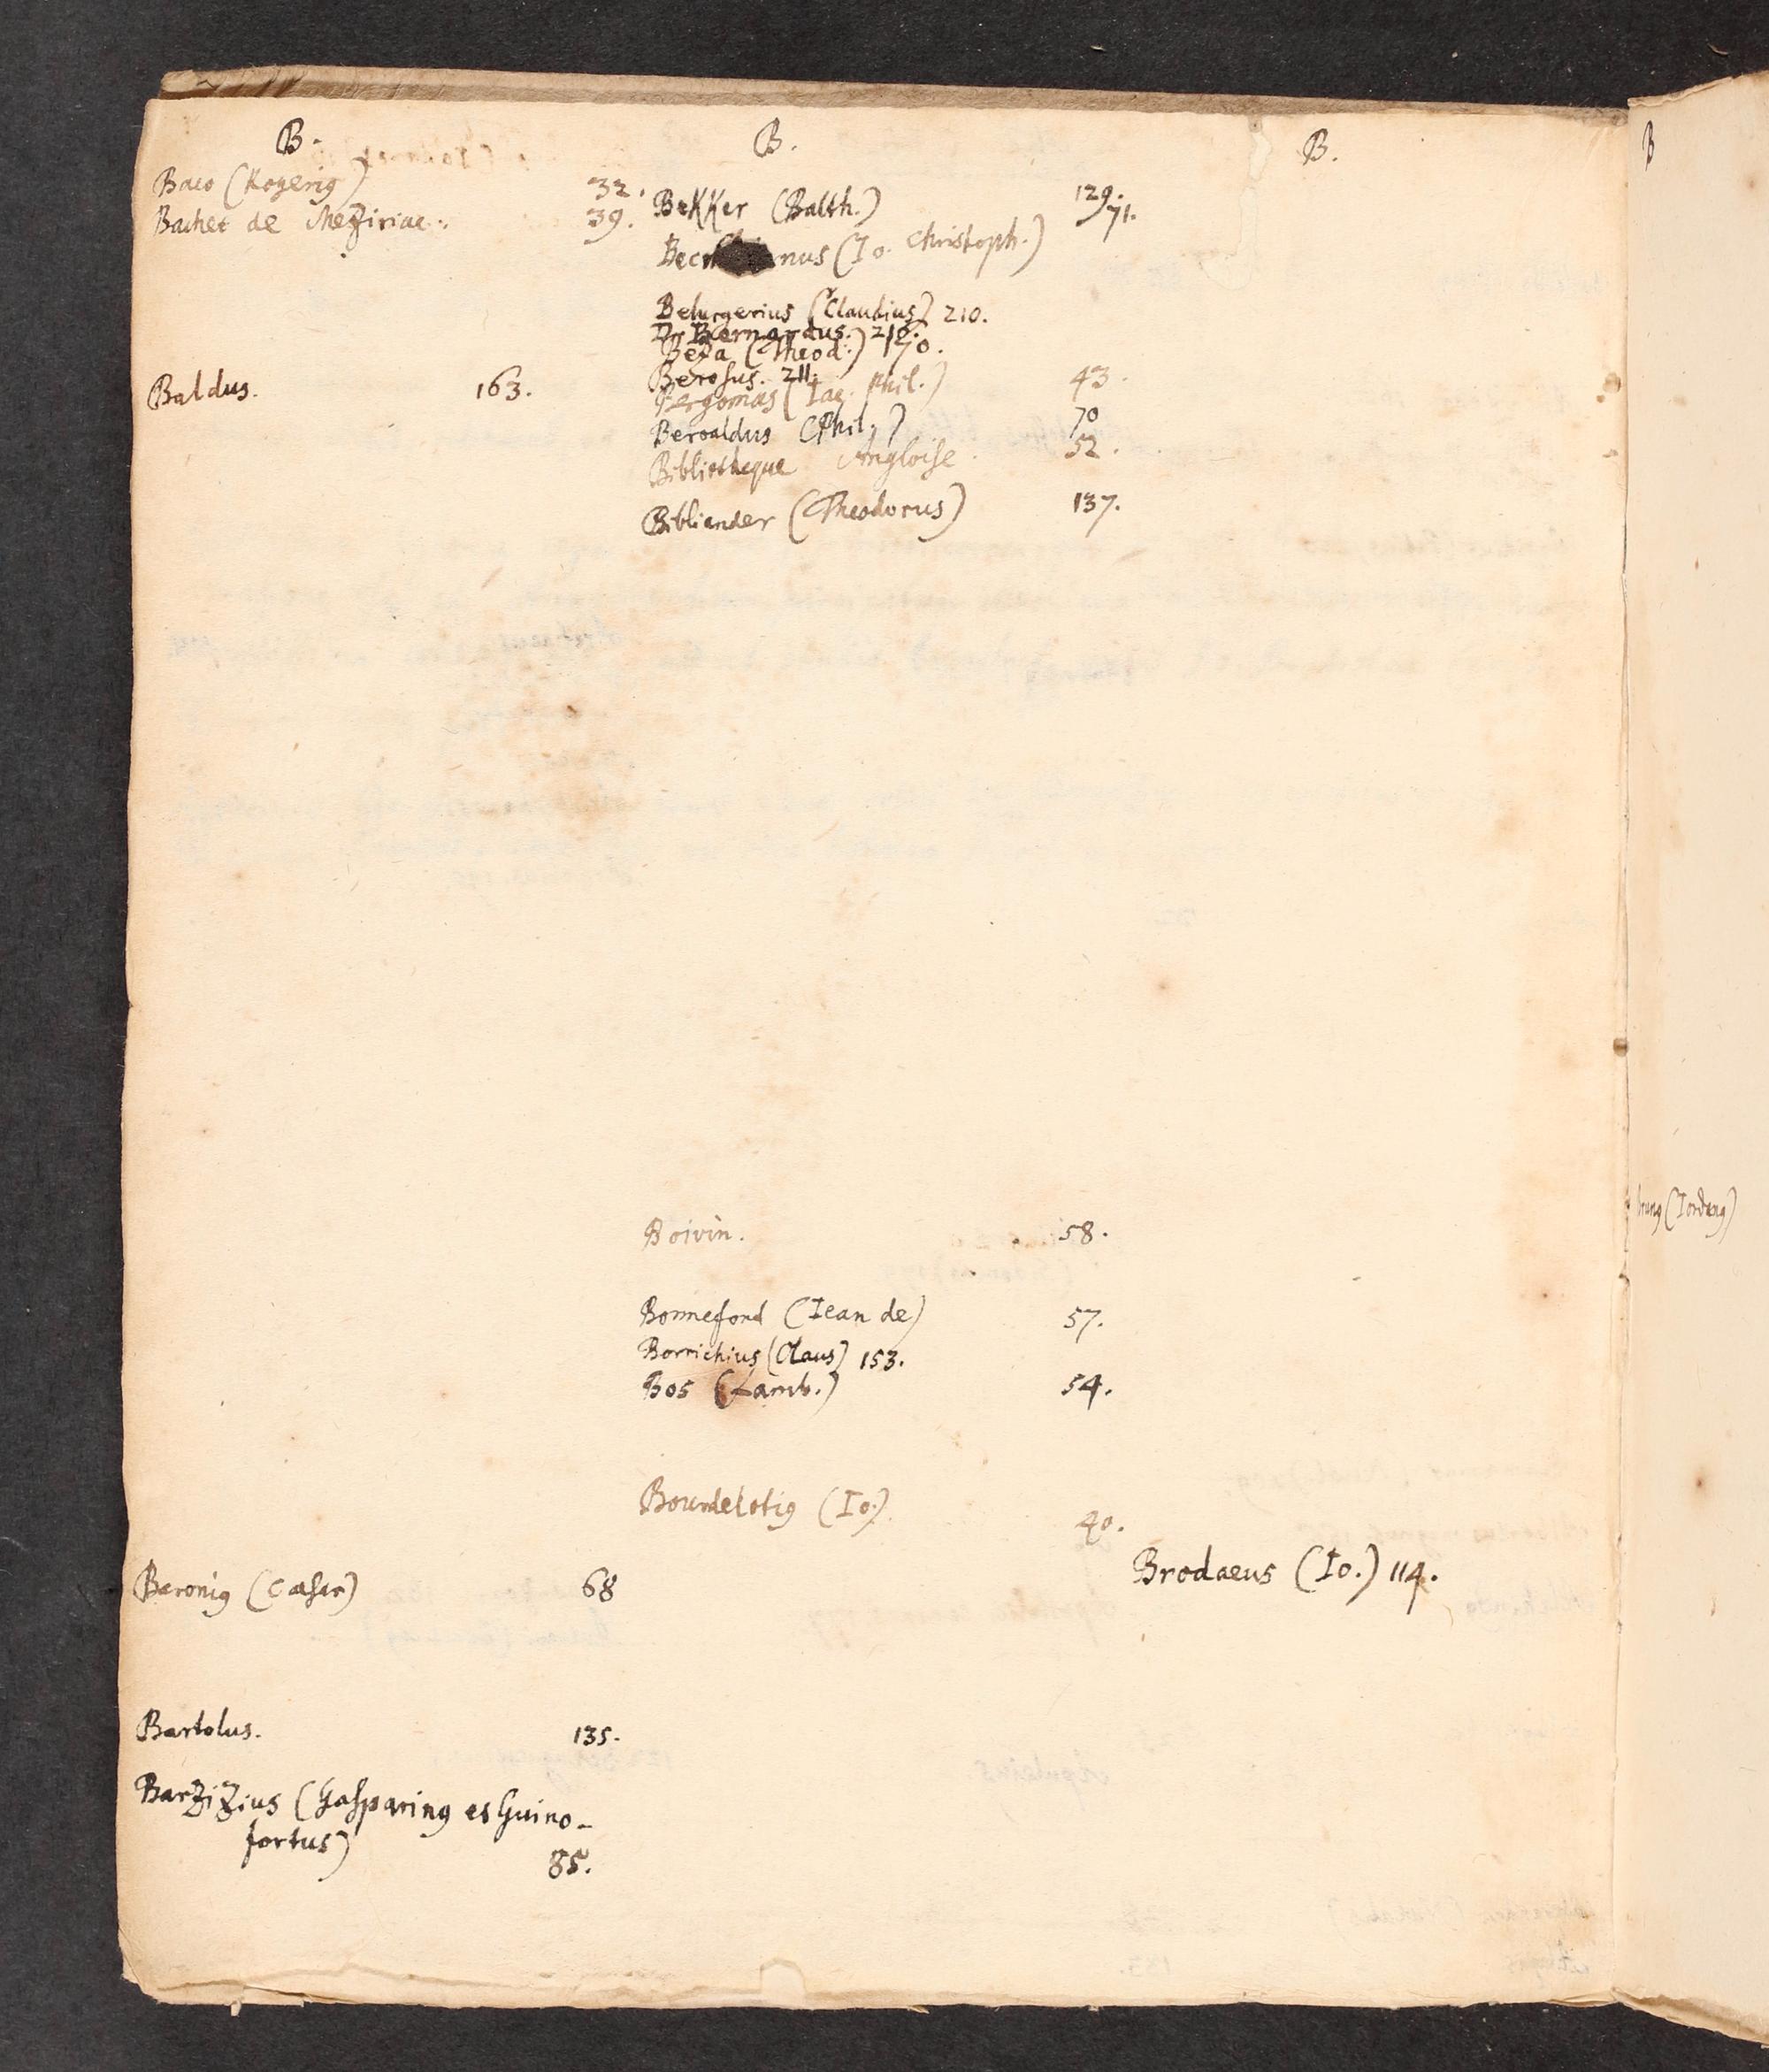 B.
Baco (Rogerig) 32.
Bachet de Meziriac. 39.
Baldus. 163.
Baronig (Caesar) 68
Bartolus. 135.
Barzizius (Gasparing et Guino-
fortus) 85.
B.
BeKKer (Balth.) 129.
nus (Io. Christoph.) 71.
Belurgerius (Claudius) 210.
Dr Bernardus. 210.
Beza (Theod.) 170.
Berosus. 211.
Bergomas (Iac. Phil.) 43.
Beroaldus (Phil.) 70
Bibliotheque Angloise 52.
Bibliander (Theodorus) 137.
Boivin. 58.
Bonnefond (Iean de) 57.
Borrichius (Olaus) 153.
Bos (Lamb.) 54.
Bourdelotig (Io.) 40.
B.
Brodaeus (Io.) 114.
B
(Iordang)